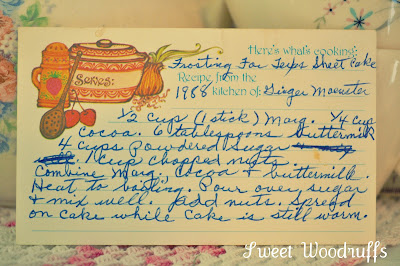 Here's what's cooking:
Frosting For Texas Sheet Cake
Serves:
Recipe from the
1988 kitchen of: Ginger
1/2 cup (1 stick) Marg. 1/4 cup
cocoa. 6 tablespoons buttermilk
4 cups Powdered Sugar
1 cup chopped nuts.
Combine Marg, Cocoa & buttermilk.
Heat to boiling. Pour over sugar
& mix well. Add nuts. Spread
on cake while cake is still warm.
Sweet Woodruffs